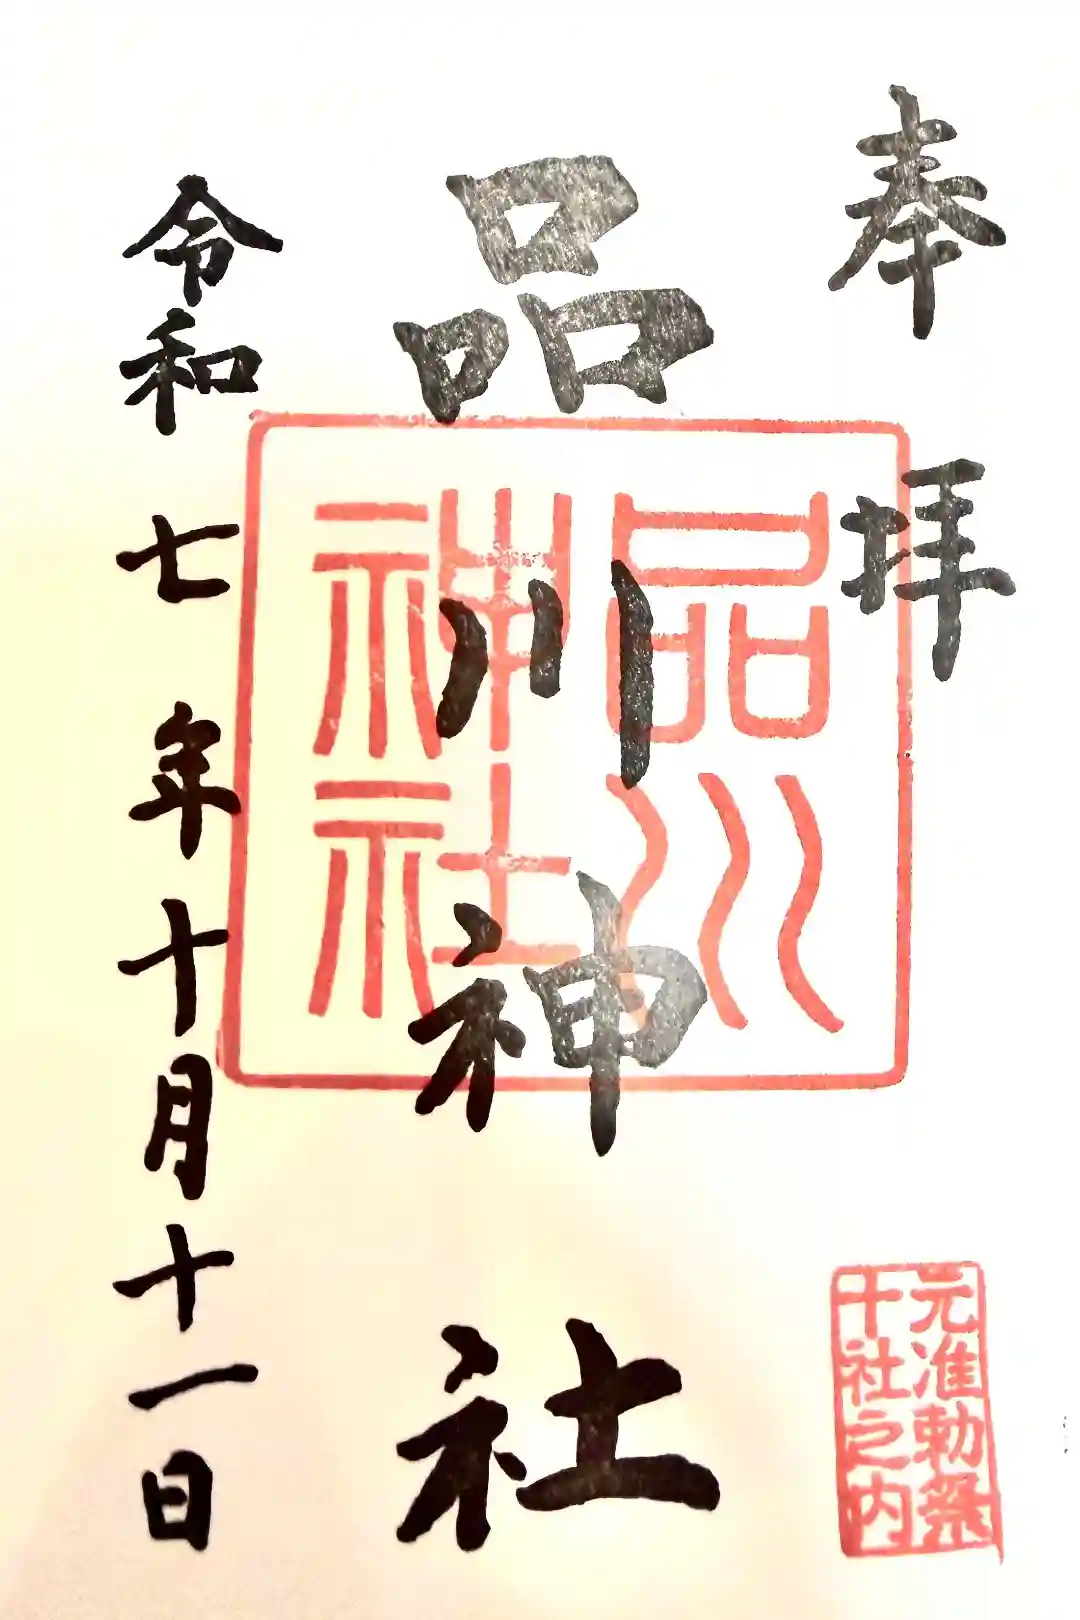 奉拝
元准勅祭
十社之内
品川神社
品川
神社
令和七年十月十一日